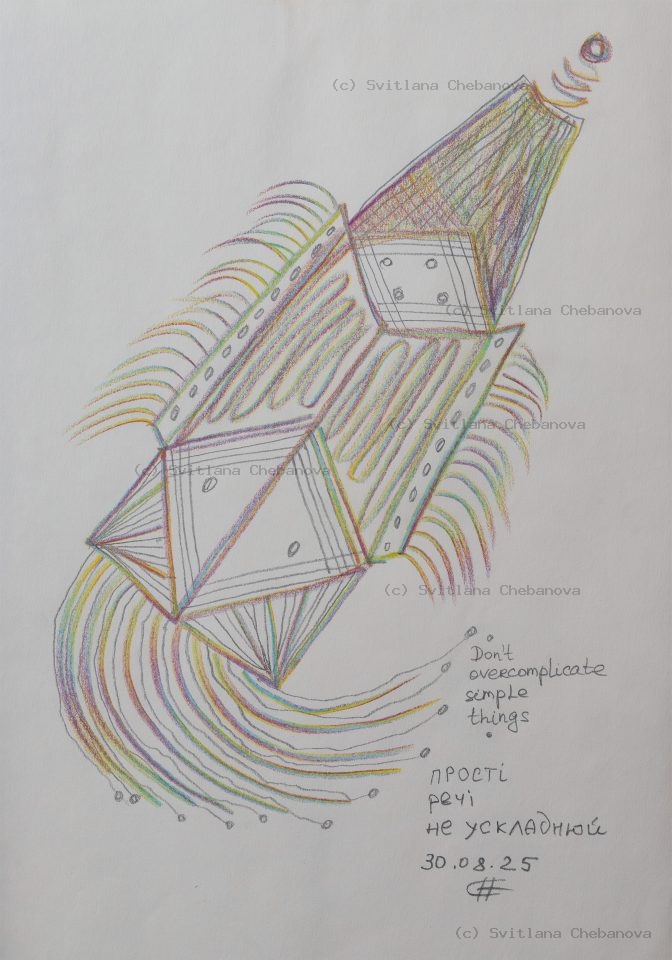 (c) Svitlana Chebanova
(c) Svitlana Chebanova
(c) Svitlana Chebanova
(c) Svitlana Chebanova
(c) Svitlana Chebanova
Don't
overcomplicate
simple
things
прості
речі
не ускладнюй
30.08.25
(c) Svitlana Chebanova